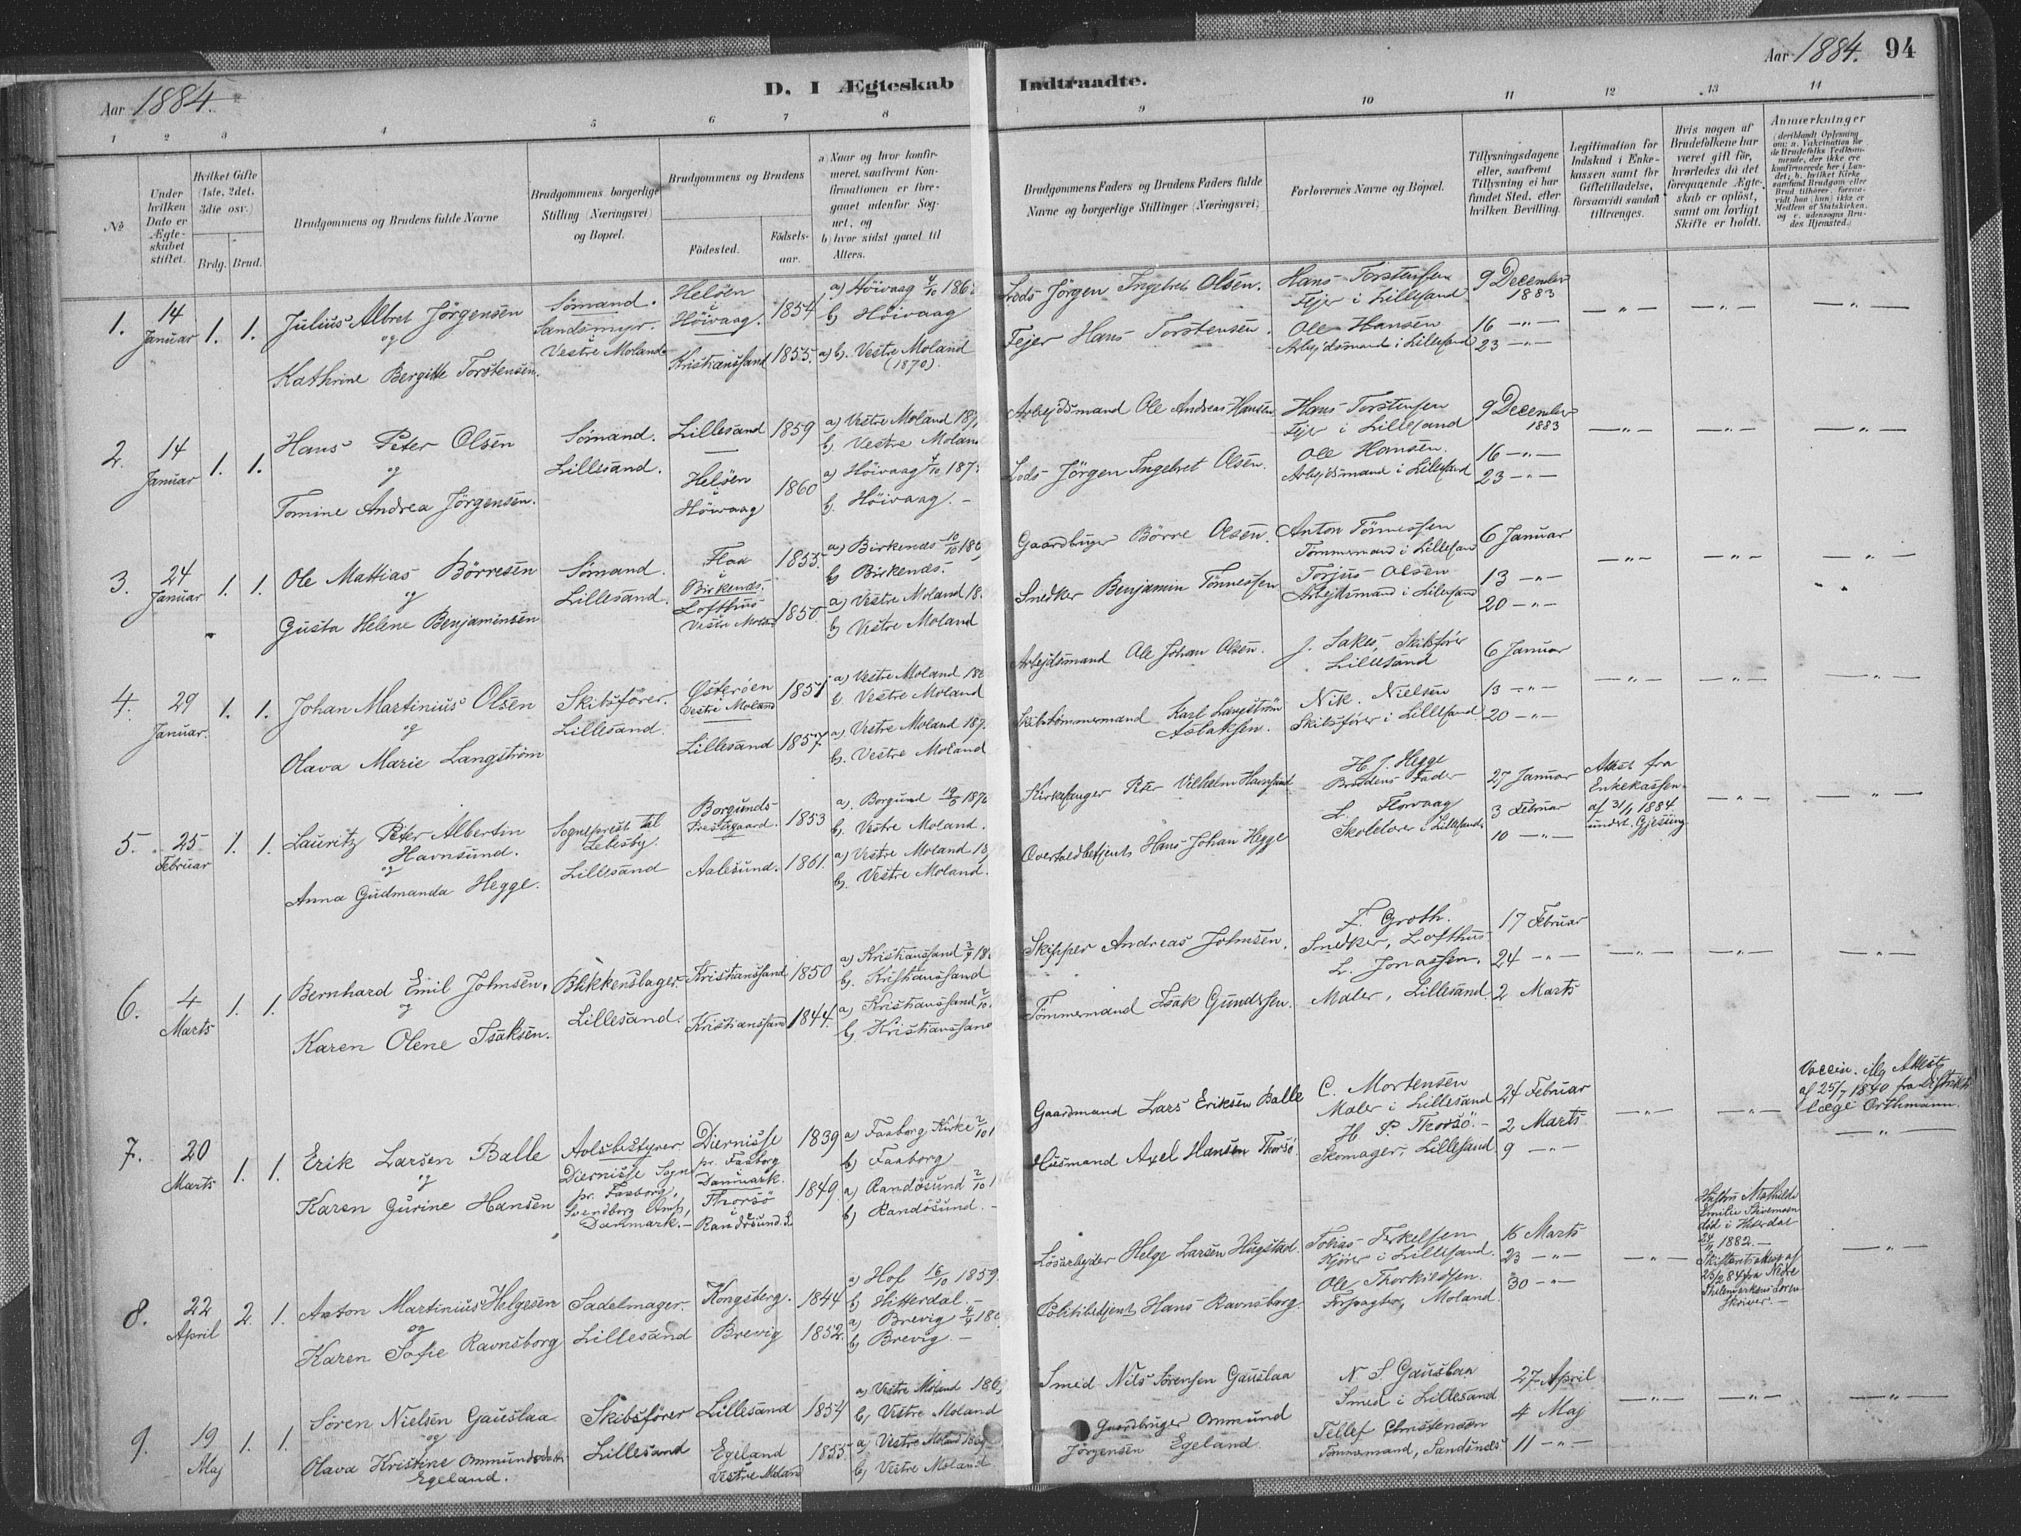 Aar 1884.
D. I Ægteskab Indtraadte.
Aar 1884. 94
1 2 3 4 5 6 7 8 9 10 11 12 13 14
No
Under hvilken Dato er Ægteskabet stiftet.
Hvilket Gifte (1ste, 2det, 3die osv.)
Brdg. Brud.
Brudgommens og Brudens fulde Navne
Brudgommens borgerlige Stilling (Næringsvei) og Bopæl.
Brudgommens og Brudens
Födested.
Födselsaar.
a) Naar og hvor konfirmeret, saafremt Konfirmationen er foregaaet udenfor Sognet, og
b) hvor sidst gaaet til Alters.
Brudgommens Faders og Brudens Faders fulde Navne og borgerlige Stillinger (Næringsvei)
Forlovernes Navne og Bopæl.
Tillysningsdagene eller, saafremt Tillysning ei har fundet Sted, efter hvilken Bevilling.
Legitimation for Indskud i Enkekassen samt for Giftetilladelse, forsaavidt saadan tiltrænges.
Hvis nogen af Brudefolkene har været gift för, hvorledes da det foregaaende Ægteskab er oplöst, samt om lovligt Skifte er holdt.
Anmærkninger
1. 14 Januar 1. 1.
Julius Albret Jörgensen
og
Kathrine Bergitte Torstensen.
Sömand.
Sandsmyr.
Vestre Moland
Helöen
Höivaag. 1854
Kristianssand 1855.
a) Höivaag 4/10 186
b) Höivaag
a) b. Vestre Moland
(1870).
Lods Jörgen Ingebret Olsen.
Fejer Hans Torstensen.
Hans Torstensen
Fejer i Lillesand
Ole Hansen
Arbejdsmand i Lillesand
9 December
1883
16 -"-
23 -"-
-"- -"- -"-
2. 14 Januar 1. 1.
Hans Peter Olsen
og
Tomine Andrea Jörgensen.
Sömand.
Lillesand.
Lillesand 1859
Helöen
i
Höivaag 1860
a) Vestre Moland 187
b) Vestre Moland
a) Höivaag 4/10 187
b. Höivaag.-
Arbejdsmand Ole Andreas Hansen
Lods Jörgen Ingebret Olsen.
Hans Torstensen
Fejer i Lillesand
Ole Hansen.
Arbejdsmand i Lillesand
9 December
1883
16 -"-
23 -"-
-"- -"- -"-
3. 24 Januar 1. 1.
Ole Mattias Börresen
og
Gusta Helene Benjaminsen
Sömand.
Lillesand.
Flaa
i
Birkenæs. 1855.
Lofthus
Vestre Moland 1850.
a) Birkenæs 10/10 186
b) Birkenæs.
a) Vestre Moland 18
b) Vestre Moland
Gaardbruger Börre Olsen.
Snedker Benjamin Tönnessen
Anton Tönnessen
Tömmermand i Lillesand
Torjus Olsen
Arbejdsmand i Lillesand
6 Januar
13 -"-
20 -"-
-"- -"- -"-
4. 29 Januar. 1. 1.
Johan Martinius Olsen
og
Olava Marie Langström
Skibsförer.
Lillesand.
Österöen
Vestre Moland 1851
Lillesand 1857.
a) Vestre Moland 186
b. Vestre Moland
a) Vestre Moland 187
b. Vestre Moland
Arbejdsmand Ole Johan Olsen.
Skibstömmermand Karl Langström
Aslaksen.
J. Sakes, Skibsförer
Lillesand
Nik. Nielsen
Skibsförer i Lillesand
6 Januar
13 -"-
20 -"-
-"- -"- -"-
5. 25 Februar 1. 1.
Lauritz Peter Albertin
Havnsund.
og
Anna Gudmanda Hegge.
Sogneprest til
Lebesby.
Lillesand
Borgunds-
Prestegaard. 1853
Aalesund. 1861.
a). Borgund 18
b. Vestre Moland.
a) Vestre Moland 18
b). Vestre Moland.
Kirkesanger Peter Vilhelm Havnsund
Overtoldbetjent Hans Johan Hegge
H. J. Hegge
Brudens Fader
L. Florvaag
Skolelærer i Lillesand
27 Januar
3 Februar
10 -"-
Attest fra
Enkekassen
af 31/1 1884
undert. Gjesing
-"- -"-
6. 4 Marts 1. 1.
Bernhard Emil Johnsen.
og
Karen Olene Isaksen.
Blikkenslager.
Lillesand.
Kristianssand 1850
Kristianssand 1844.
a) Kristianssand 186
b). Kristianssand
a) Kristianssand
b) Kristianssand
Skipper Andreas Johnsen.
Tömmermand Isak Gundersen.
F. Groth.
Snedker, Lofthus
L. Jonassen,
Maler, Lillesand
17 Februar
24 -"-
2 Marts
-"- -"- -"-
7. 20 Marts 1. 1.
Erik Larsen Balle
og
Karen Gurine Hansen
Avlsbestyrer
Diernisse Sogn
pr. Faaborg,
Svendborg Amt,
Danmark.-
Diernisse
pr. Faaborg
Danmark. 1839
Thorsö
i
Randösund. 1849
a) Faaborg Kirke
b) Faaborg
a) Randösund
b) Randösund.-
Gaardmand Lars Eriksen Balle
Husmand Axel Hansen Thorsö
C. Mortensen
Maler i Lillesand
H. P. Thorsö.-
Skomager, Lillesand
24 Februar
2 Marts
9 -"-
-"- -"-
Vaccin. ifög Attest
af 25/7 1840 fra Distrikts
læge Orthmann.
-"-
8. 22 April 2. 1.
Anton Martinius Helgesen
og
Karen Sofie Ravnsborg
Sadelmager.
Lillesand
Kongsberg. 1844
Brevig 1852.
a) Hof 16/10 1859.
b) Hitterdal.-
a) Brevig
b) Brevig.-
Lösarbejder Helge Larsen Hugstad.
Politibetjent Hans Ravnsborg.
Tobias Terkelsen
Kjörer i Lillesand.
Ole Thorkildsen.
Forpagter, Moland
16 Marts
23 -"-
30 -"-
-"-
Hustru Mathilde
Emilie
död i Hitterdal
1882.-
Skifteattest af
84 fra Nedre
Thelemarkens Soren
skriver.-
-"-
9. 19 Maj 1. 1.
Sören Nielsen Gauslaa
og
Olava Kristine Ommundsdatter
Egeland.
Skibsförer
Lillesand
Lillesand 1854
Egeland
Vestre Moland 1855.
a) Vestre Moland 186
b) Vestre Moland
a) Vestre Moland
b) Vestre Moland
Smed Nils Sörensen Gauslaa
Gaardbruger Ommund
Jörgensen Egeland.
N. S. Gauslaa
Smed i Lillesand
Tellef Christensen
Tömmermand, Sandsmyr
27 April
4 Maj
11 -"-
-"- -"- -"-